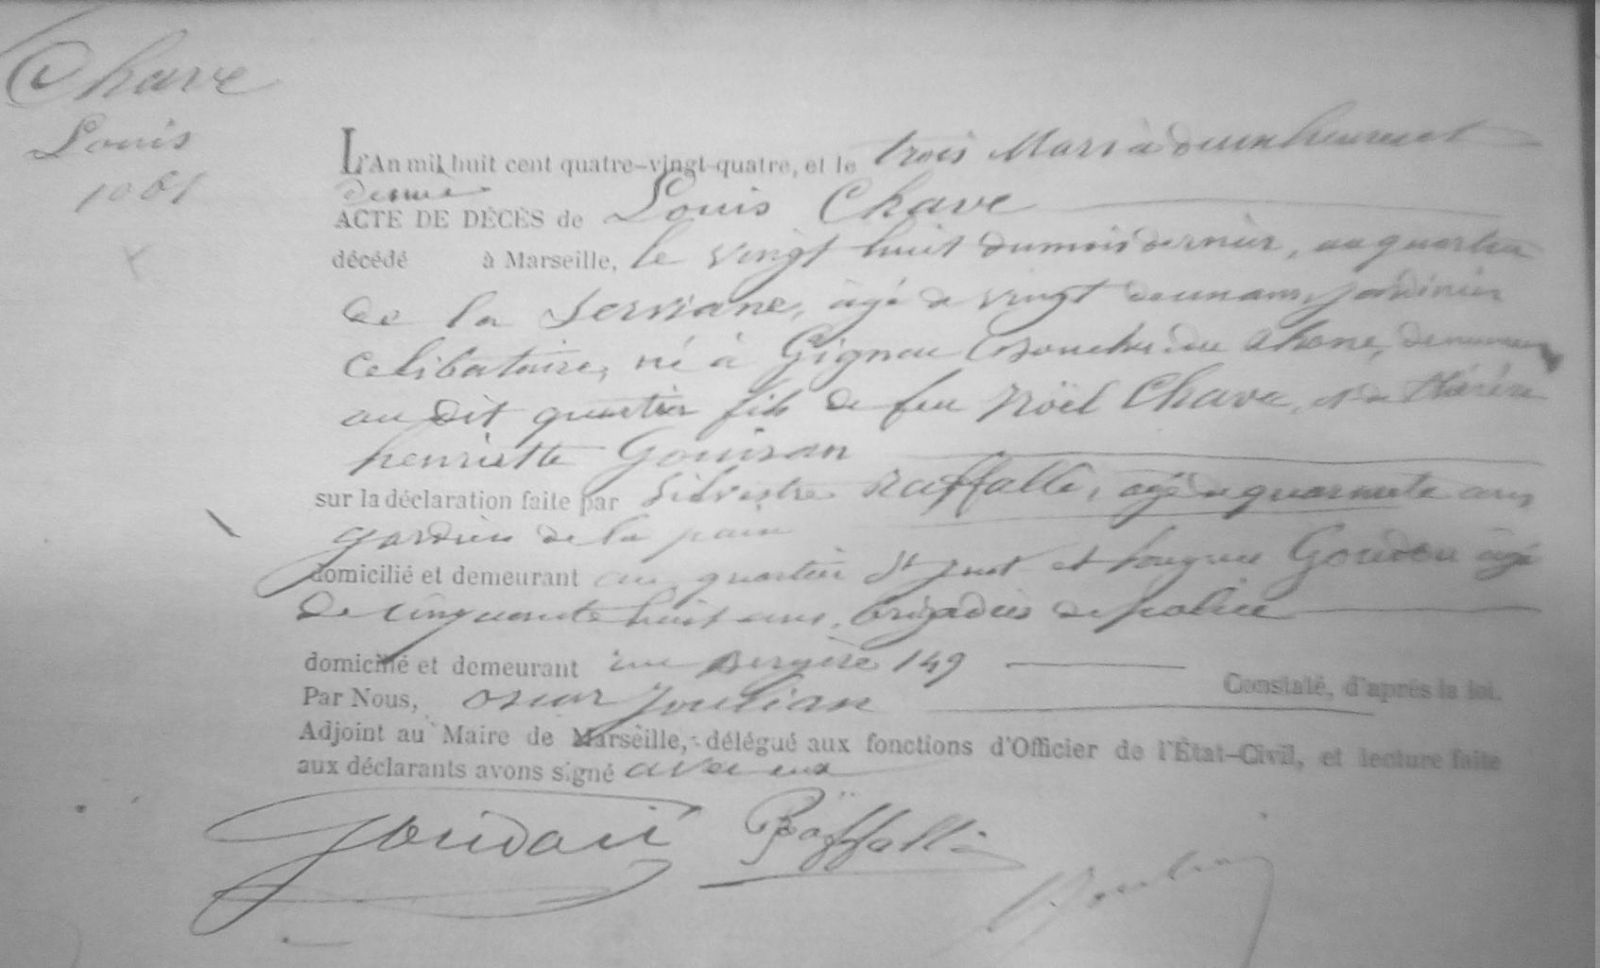 Chave
Louis
1061
L'An mil huit cent quatre-vingt-quatre, et le trois Mars à deux heures et
demie
ACTE DE DÉCÈS de Louis Chave
décédé à Marseille, le vingt huit du mois dernier, au quartier
de la Serviane, âgé de vingt deux ans, jardinier
celibataire, né à Gignac Bouches du Rhone, demeurant
au dit quartier fils de feu Noël Chave, et de Thérèse
henriette Gouiran
sur la déclaration faite par Silvestre Raffalli, âgé de quarante ans
gardien de la paix
domicilié et demeurant au quartier St Just et Goudou âgé
de cinquante huit ans, brigadier de police
domicilié et demeurant rue Bergère 149
Constaté, d'après la loi.
Par Nous, oscar Joulian
Adjoint au Maire de Marseille, délégué aux fonctions d'Officier de l'État-Civil, et lecture faite
aux déclarants avons signé avec eux
Raffalli